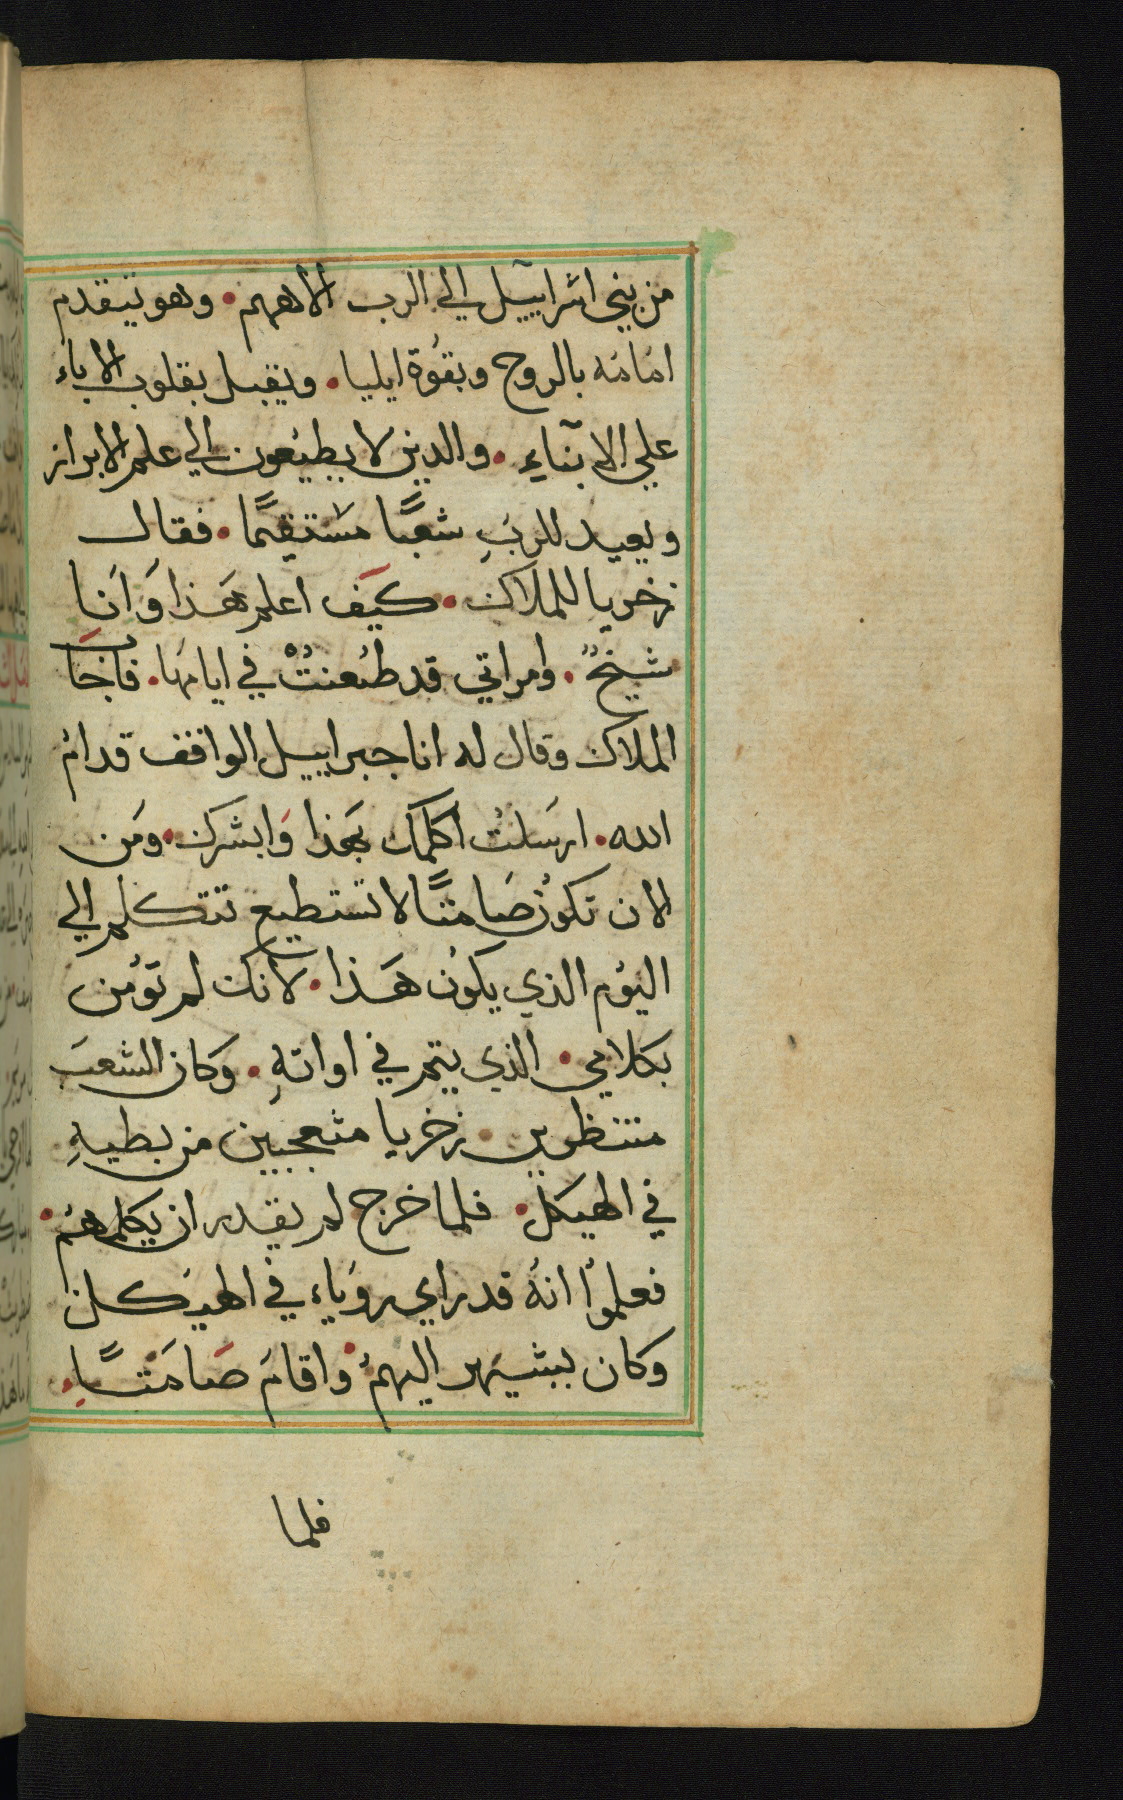 من بني اسراييل الي الرب الاههم • وهو يتقدم
امامه بالروح وبقوة ايليا • ويقبل بقلوب الاباء
علي الابناء • والدين لا يطيعون الي علم الابرار
ويعيد للرب شعبًا مستقيمًا • فقال
زخريا للملاك • كيَف اعلم هَذا وَانَا
شيخٌ • وامراتي قد طعنتْ في ايامهَا • فاجَاب
الملاك وقال له انا جبراييل الواقف قدام
الله • ارسَلتُ اكلمك بهَذا وَابشرك • ومَن
لان تكونُ صَامتًا لا تستطيع تتكلم الي
اليوم الذي يكون هَذا • لانك لم تؤمن
بكلامي • الذي يتم في اوانهِ • وَكان الشعبَ
منتظرين • زخريا متعجبين من بطيهِ
في الهيكل • فلما خرج لم يقدر ان يكلمهم •
فعلموا انهُ قد راي روياء في الهيكل
وكان يبشيهر اليهم • واقامَ صَامتًا •
فلما